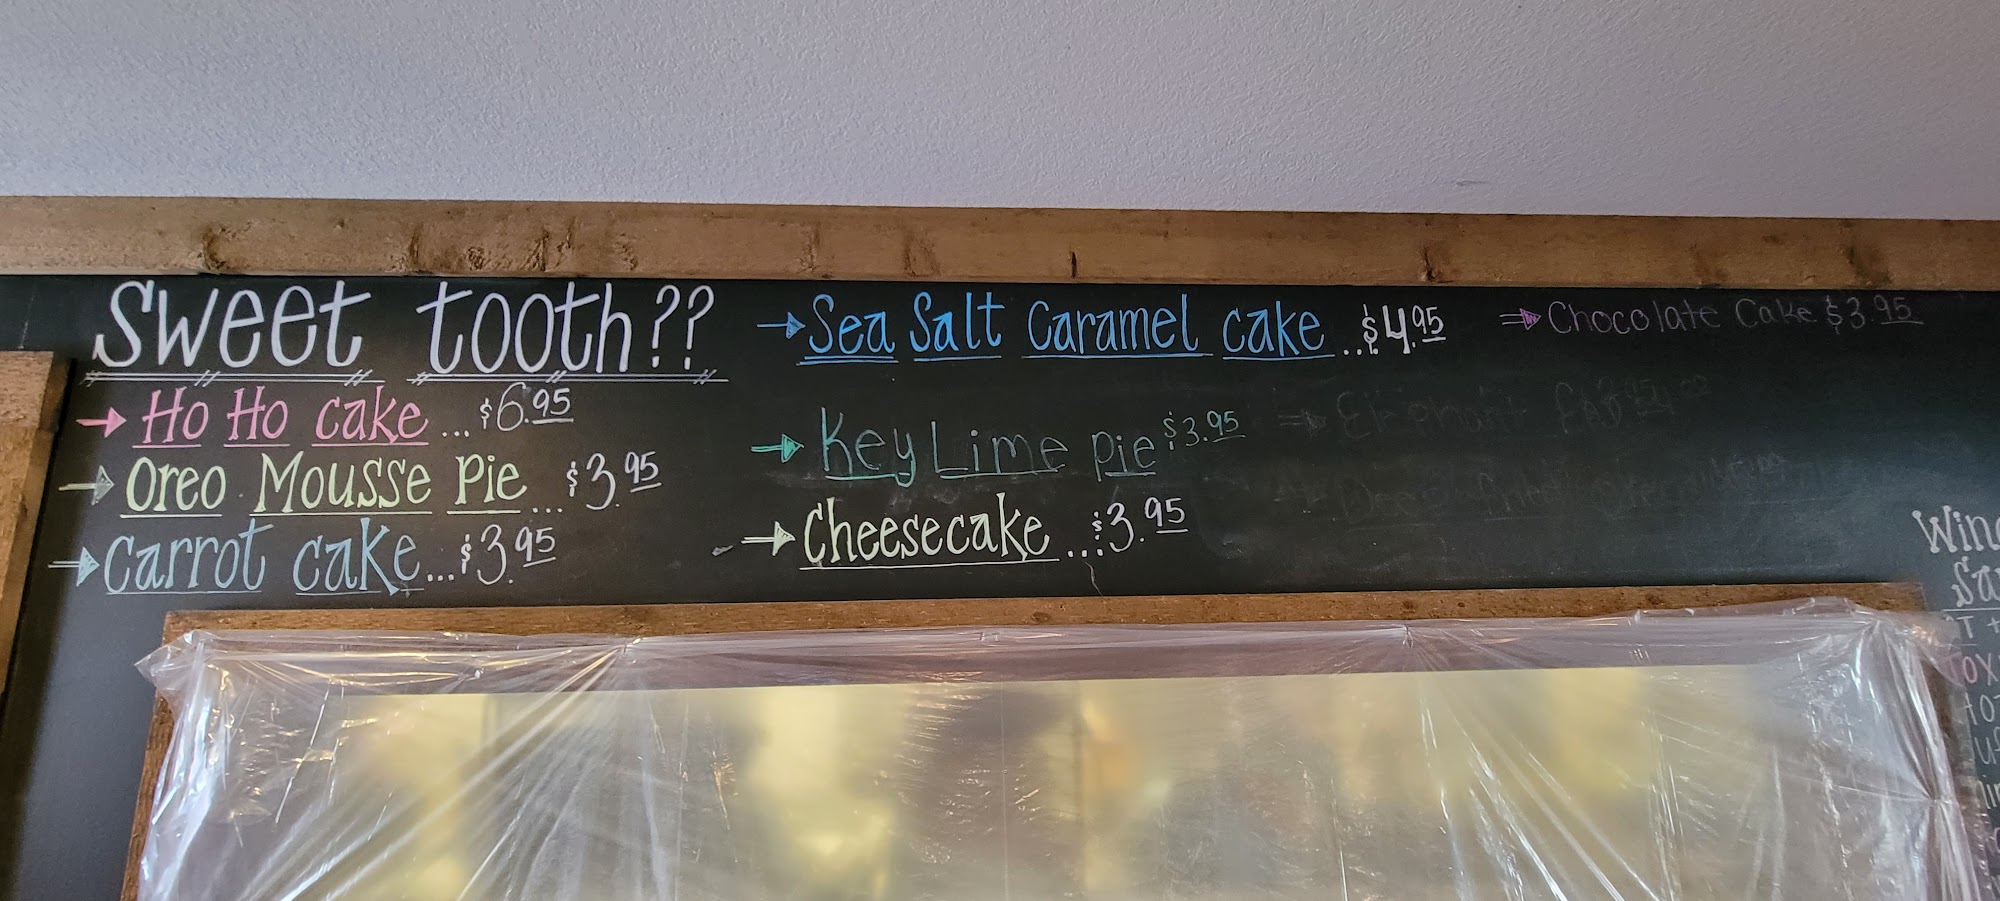 Sweet tooth??
Ho Ho cake ...$6.95
Oreo Mousse Pie ... $3.95
Carrot cake...$3.95
Sea Salt Caramel cake ..$4.95
Key Lime Pie $3.95
Cheesecake ...$3.95
Chocolate Cake $3.95
Elephant
Deep fried